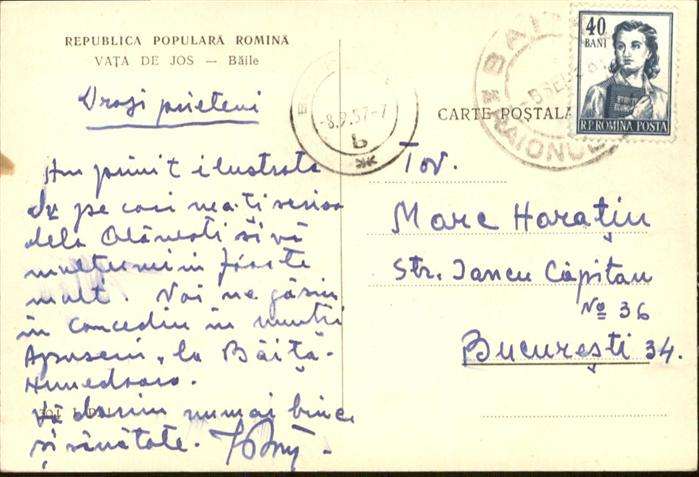 REPUBLICA POPULARĂ ROMINĂ
VAȚA DE JOS — Băile
Dragi prieteni
Am primit ilustrata
pe care ne-ați scriso
dela Olănești și vă
mulțumim foarte
mult. Noi ne găsim
în concediu în munții
Apuseni, la Băița-
Hunedoara.
Vă dorim numai bine
și sănătate.
-8.9.57-7
CARTE POȘTALĂ
BAIȚA
RAIONUL
40
BANI
R.P.ROMINA POSTA
Tov.
Marc Horațiu
Str. Iancu Căpitan
No 36
București 34.